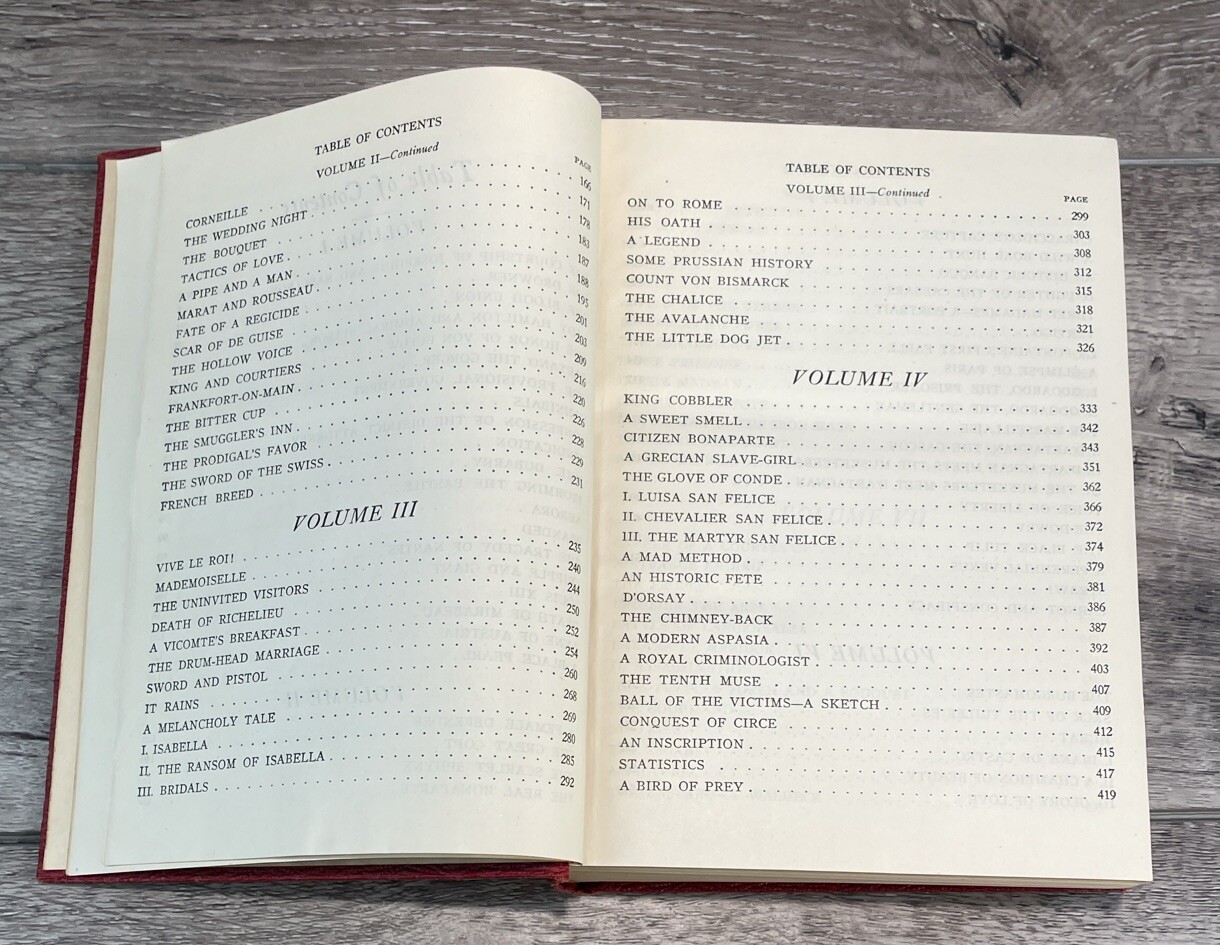 TABLE OF CONTENTS
VOLUME II—Continued
PAGE
CORNEILLE 166
THE WEDDING NIGHT 171
THE BOUQUET 178
TACTICS OF LOVE 183
A PIPE AND A MAN 187
MARAT AND ROUSSEAU 188
FATE OF A REGICIDE 195
SCAR OF DE GUISE 201
THE HOLLOW VOICE 203
KING AND COURTIERS 209
FRANKFORT-ON-MAIN 216
THE BITTER CUP 220
THE SMUGGLER'S INN 226
THE PRODIGAL'S FAVOR 228
THE SWORD OF THE SWISS 229
FRENCH BREED 231
VOLUME III
VIVE LE ROI! 235
MADEMOISELLE 240
THE UNINVITED VISITORS 244
DEATH OF RICHELIEU 250
A VICOMTE'S BREAKFAST 252
THE DRUM-HEAD MARRIAGE 254
SWORD AND PISTOL 260
IT RAINS 268
A MELANCHOLY TALE 269
I. ISABELLA 280
II. THE RANSOM OF ISABELLA 285
III. BRIDALS 292
TABLE OF CONTENTS
VOLUME III—Continued
PAGE
ON TO ROME 299
HIS OATH 303
A LEGEND 308
SOME PRUSSIAN HISTORY 312
COUNT VON BISMARCK 315
THE CHALICE 318
THE AVALANCHE 321
THE LITTLE DOG JET 326
VOLUME IV
KING COBBLER 333
A SWEET SMELL 342
CITIZEN BONAPARTE 343
A GRECIAN SLAVE-GIRL 351
THE GLOVE OF CONDE 362
I. LUISA SAN FELICE 366
II. CHEVALIER SAN FELICE 372
III. THE MARTYR SAN FELICE 374
A MAD METHOD 379
AN HISTORIC FETE 381
D'ORSAY 386
THE CHIMNEY-BACK 387
A MODERN ASPASIA 392
A ROYAL CRIMINOLOGIST 403
THE TENTH MUSE 407
BALL OF THE VICTIMS—A SKETCH 409
CONQUEST OF CIRCE 412
AN INSCRIPTION 415
STATISTICS 417
A BIRD OF PREY 419